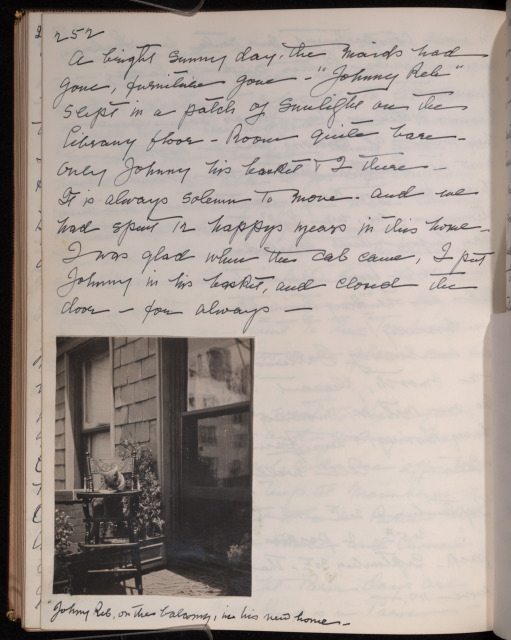 252
A bright sunny day, the maids had
gone, furniture gone - "Johnny Reb"
slept in a patch of sunlight on the
library floor - Room quite bare -
only Johnny his basket & I there -
It is always solemn to move - and we
had spent 12 happy years in this home -
I was glad when the cab came, I put
Johnny in his basket, and closed the
door - for always -
"Johnny Reb, on the balcony, in his new home -